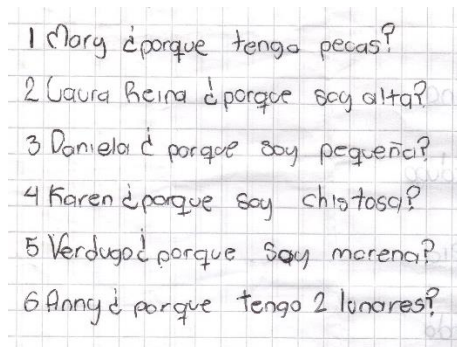 1 Mary ¿porque tengo pecas?
2 Laura Reina ¿porque soy alta?
3 Daniela ¿ porque soy pequeña?
4 Karen ¿porque soy chistosa?
5 Verdugo ¿ porque soy morena?
6 Anny ¿ porque tengo 2 lunares?